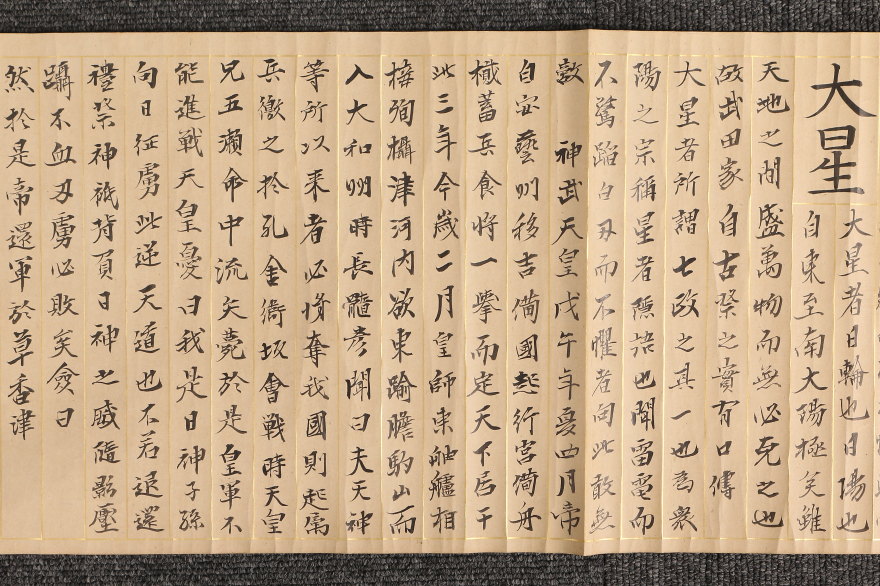 大星
大星者日輪也日陽也
自東至南大陽極矣雖
天地之間盛萬物而無必克之也
故武田家自古祭之實有口傳
大星者所謂七政之其一也為衆
陽之宗稱星者隱語也聞雷電而
不驚蹈白刃而不懼者向此敢無
敵 神武天皇戊午年夏四月帝
自安藝州移吉備國起行宮備舟
檝蓄兵食將一擧而定天下居于
此三年今歲二月皇師東舳艫相
接殉攝津河內欲東踰膽駒山而
入大和州時長髓彥聞曰夫天神
等所以来者必將奪我國則起屬
兵徼之於孔舍衛坂會戰時天皇
兄五瀨命中流矢薨於是皇軍不
能進戰天皇憂曰我是日神子孫
向日征虜此逆天道也不若退還
禮祭神祇背負日神之威隨影壓
躡不血刃虜必敗矣僉曰
然於是帝還軍於草香津